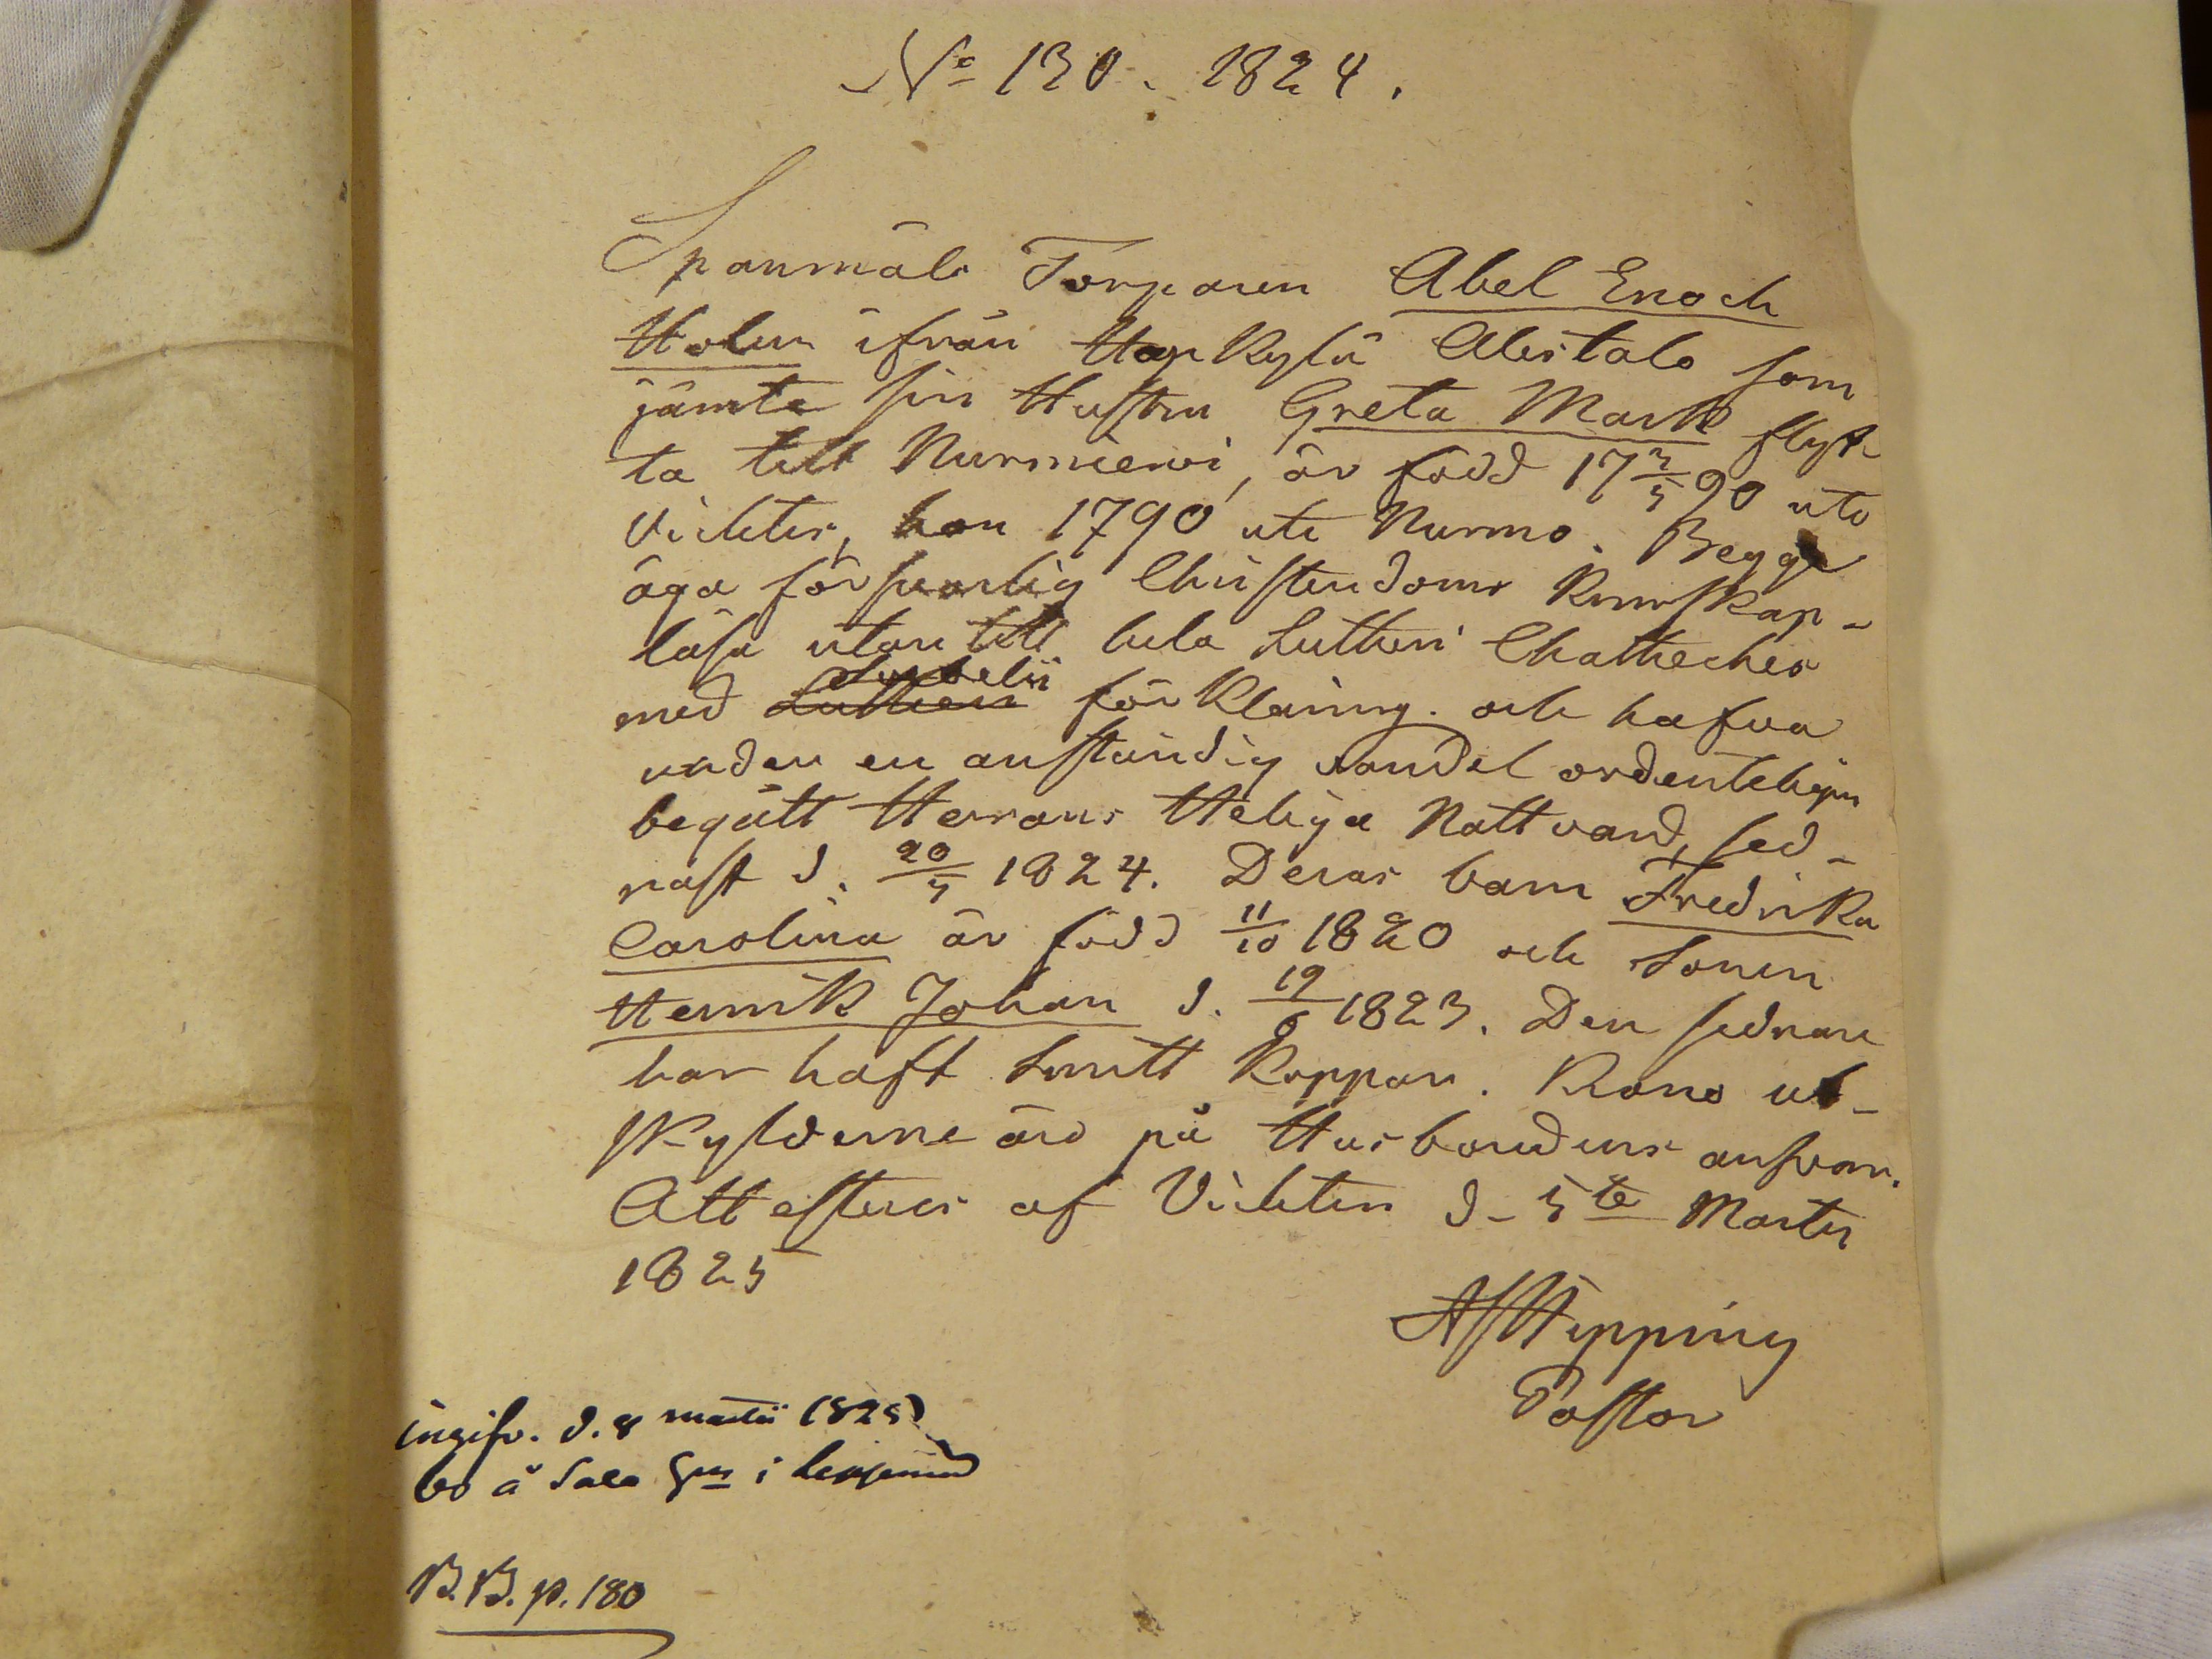 No 130. 1824.
Spanmåls Torparen Abel Enoch
Holm ifrån Haapkylä Alestalo som
jämte sin Hustru Greta Mark flyt
ta till Nurmierwi, är född 17 3/5 90 uti
Vichtis, hon 1790 uti Nurmo. Begge
äga försvarlig Christendoms Kunskap -
läsa utan till hela Lutheri Chatheches
med Lutheri Svebelii förklaring. och hafva
under en anständig vandel ordenteligen
begått Herrans Heliga Nattvard, sed-
nast d. 20/5 1824. Deras barn Fredrika
Carolina är född 11/10 1820 och Sonen
Henrik Johan d. 19/6 1823. Den sednare
har haft Smitt Koppor. Krono ut-
skylderne äro på Husbondens ansvar.
Attesteras af Vichtis d. 5te Martii
1825
AJ Hipping
Pastor
ingifv. d. 8 martii 1825
bo å Sala i
B.B. p. 180